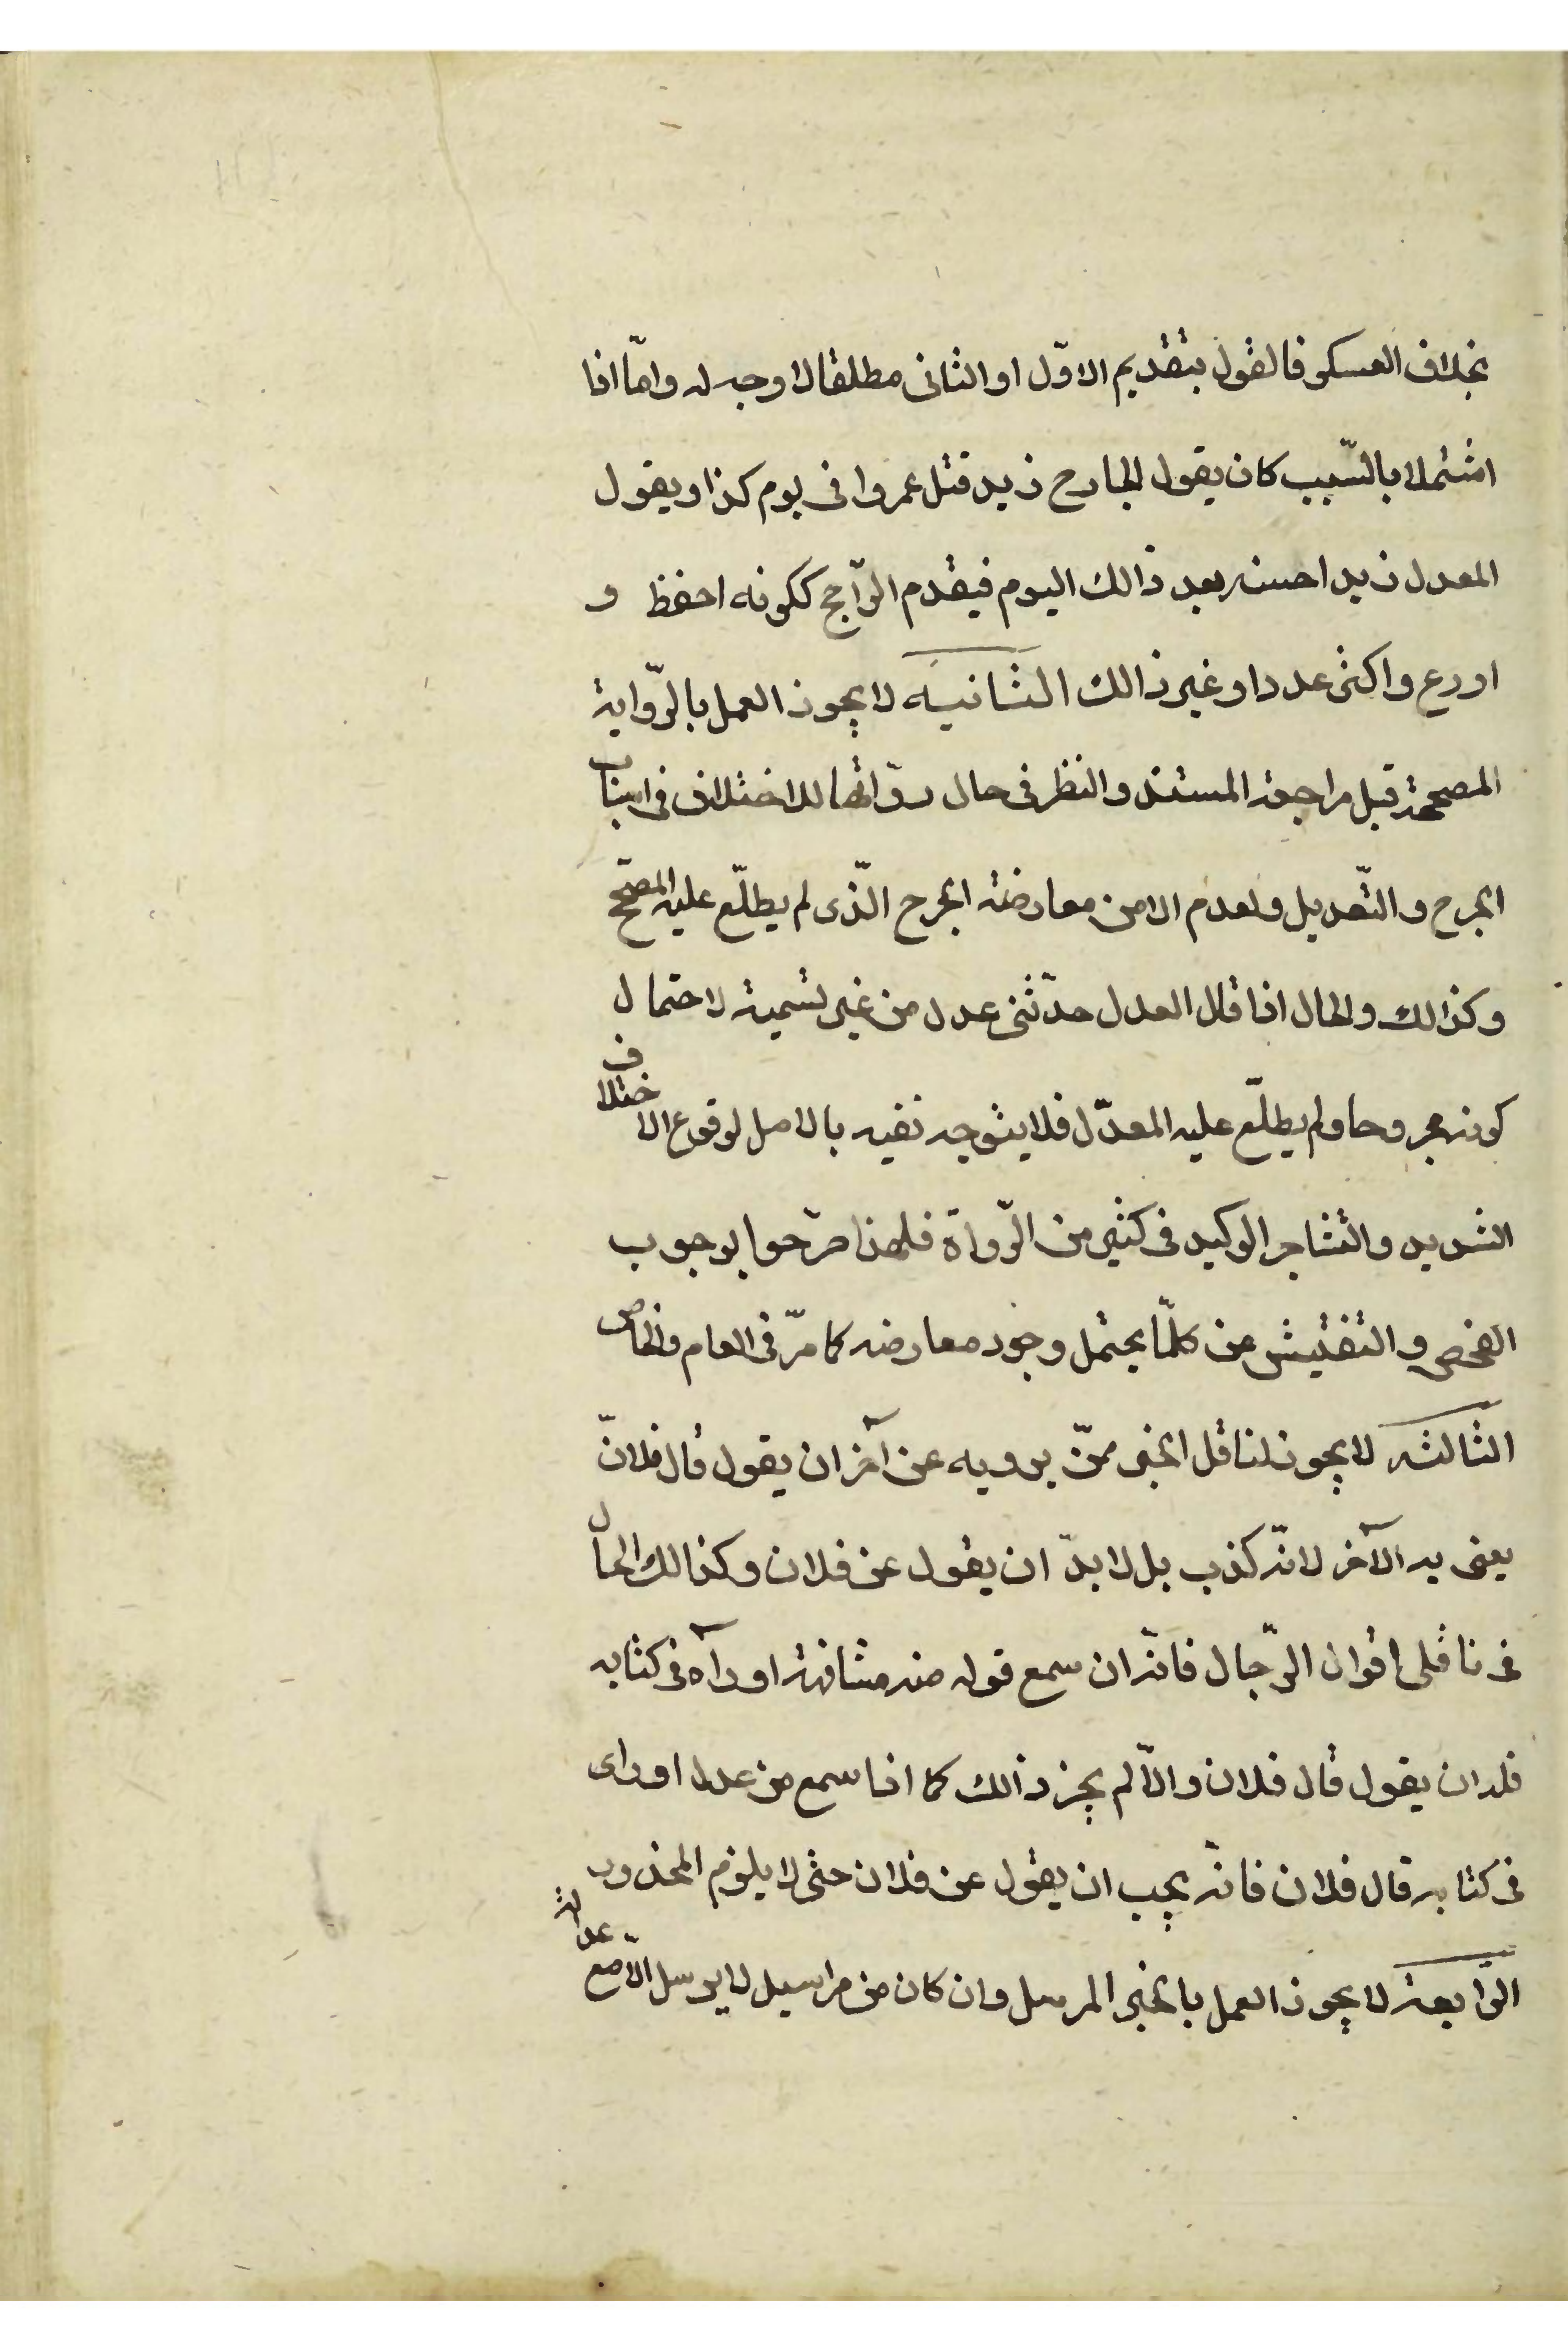 بخلاف العسكر فالقول بتقديم الاوّل او الثانى مطلقا لا وجه له وامّا اذا
اشتملا بالسّبب كان يقول الجارح زيد قتل عمروا فى يوم كذا ويقول
المعدل زيد احسنه بعد ذالك اليوم فيقدم الرّاجح ككونه احفظ و
اورع واكثر عددا وغير ذالك الثانية لا يجوز العمل بالرّواية
المصححة قبل مراجعة المستند والنظر فى حال روّاتها للاختلاف فى اسباب
الجرح والتّعديل ولعدم الامن معارضة الجرح الّذى لم يطلّع عليه المصحّح
وكذالك والحال اذا قال العدل حدّثنى عدل من غير تسمية لاحتمال
كونه مجروحا ولم يطلّع عليه المعدّل فلا يتوجه نفيه بالاصل لوقوع الاختلاف
الشديد والتشاجر الوكيد فى كثير من الرّواة فلهذا صرّحوا بوجوب
الفحص والتفتيش عن كلّما يحتمل وجود معارضه كما مرّ فى العام والخاص
الثالثه لا يجوز لناقل الخبر ممّن يرويه عن آخر ان يقول قال فلانّ
يعنى به الآخر لانّه كذب بل لا بدّ ان يقول عن فلان وكذالك الحال
فى ناقلى اقوال الرّجال فانّه ان سمع قوله منه مشافهة او رآه فى كتابه
فله ان يقول قال فلان والّا لم يجز ذالك كما اذا سمع من عدل او راى
فى كتابه قال فلان فانّه يجب ان يقول عن فلان حتى لا يلزم المحذور
الرّابعة لا يجوز العمل بالخبر المرسل وان كان من مراسيل لا يرسل الّا مع عدالة